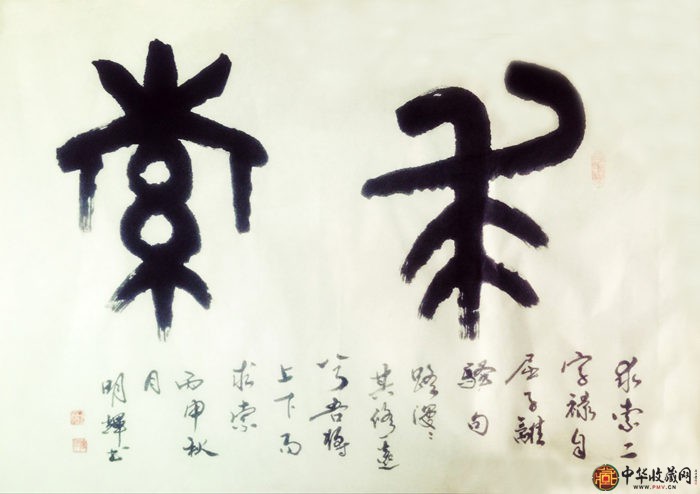 求
索
求索二
字禄自
屈子離
騷句
路漫〻
其修遠
兮吾將
上下而
求索
丙申秋
月
明輝书
中华收藏网
WWW.PMV.CN